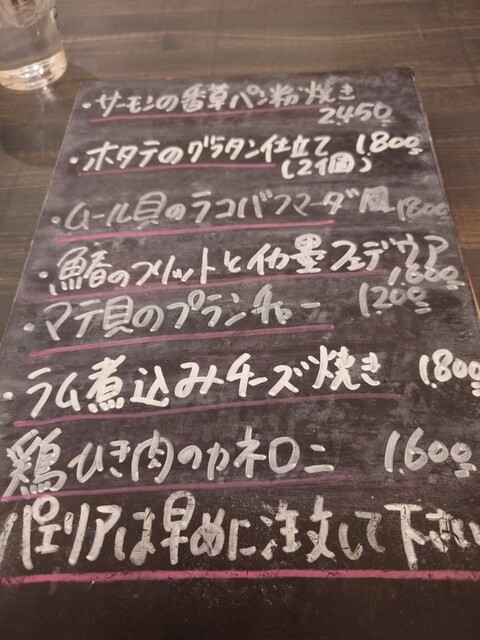 ・サーモンの香草パン粉焼き
2450
・ホタテのグラタン仕立て 1,800
(2個)
・ムール貝のラコバフマーダ風 1800
・鰆のフリットとイカ墨フェデウア
1,600
・マテ貝のプランチャー 1200
・ラム煮込みチーズ焼き 1,800
鶏ひき肉のカネロニ 1,600
パエリアは早めに注文して下さい